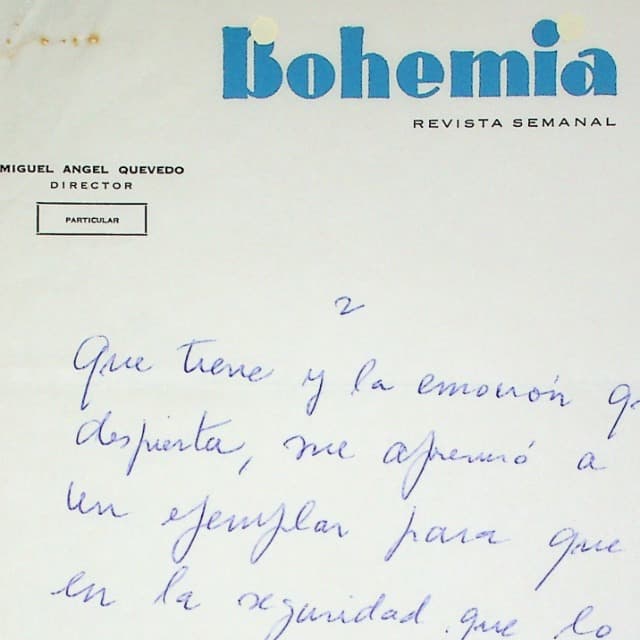 Bohemia
REVISTA SEMANAL
MIGUEL ANGEL QUEVEDO
DIRECTOR
PARTICULAR
2
Que tiene y la emoción
despierta, me apresuró a
un ejemplar para que
en la seguridad que lo